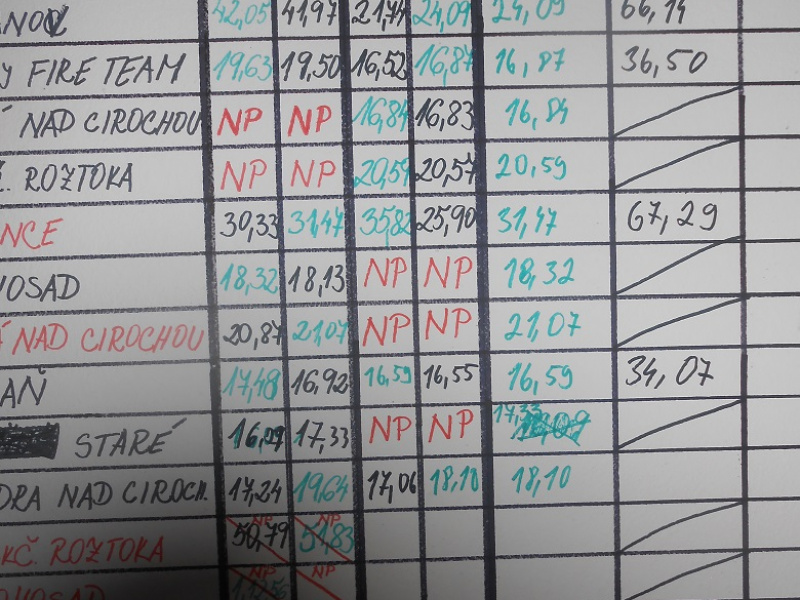 NOV 42,05 41,97 21,74 24,09 24,09 66,14
Y FIRE TEAM 19,63 19,50 16,52 16,87 16,87 36,50
NAD CIROCHOU NP NP 16,84 16,83 16,84
. ROZTOKA NP NP 20,59 20,57 20,59
NCE 30,33 31,47 35,82 25,90 31,47 67,29
OSAD 18,32 18,13 NP NP 18,32
NAD CIROCHOU 20,87 21,07 NP NP 21,07
AŇ 17,48 16,92 16,59 16,55 16,59 34,07
STARÉ 16,09 17,33 NP NP 17,33
DRA NAD CIROCH. 17,24 19,64 17,06 18,10 18,10
NP NP
KČ. ROZTOKA 50,79 51,83
NP NP
OSAD